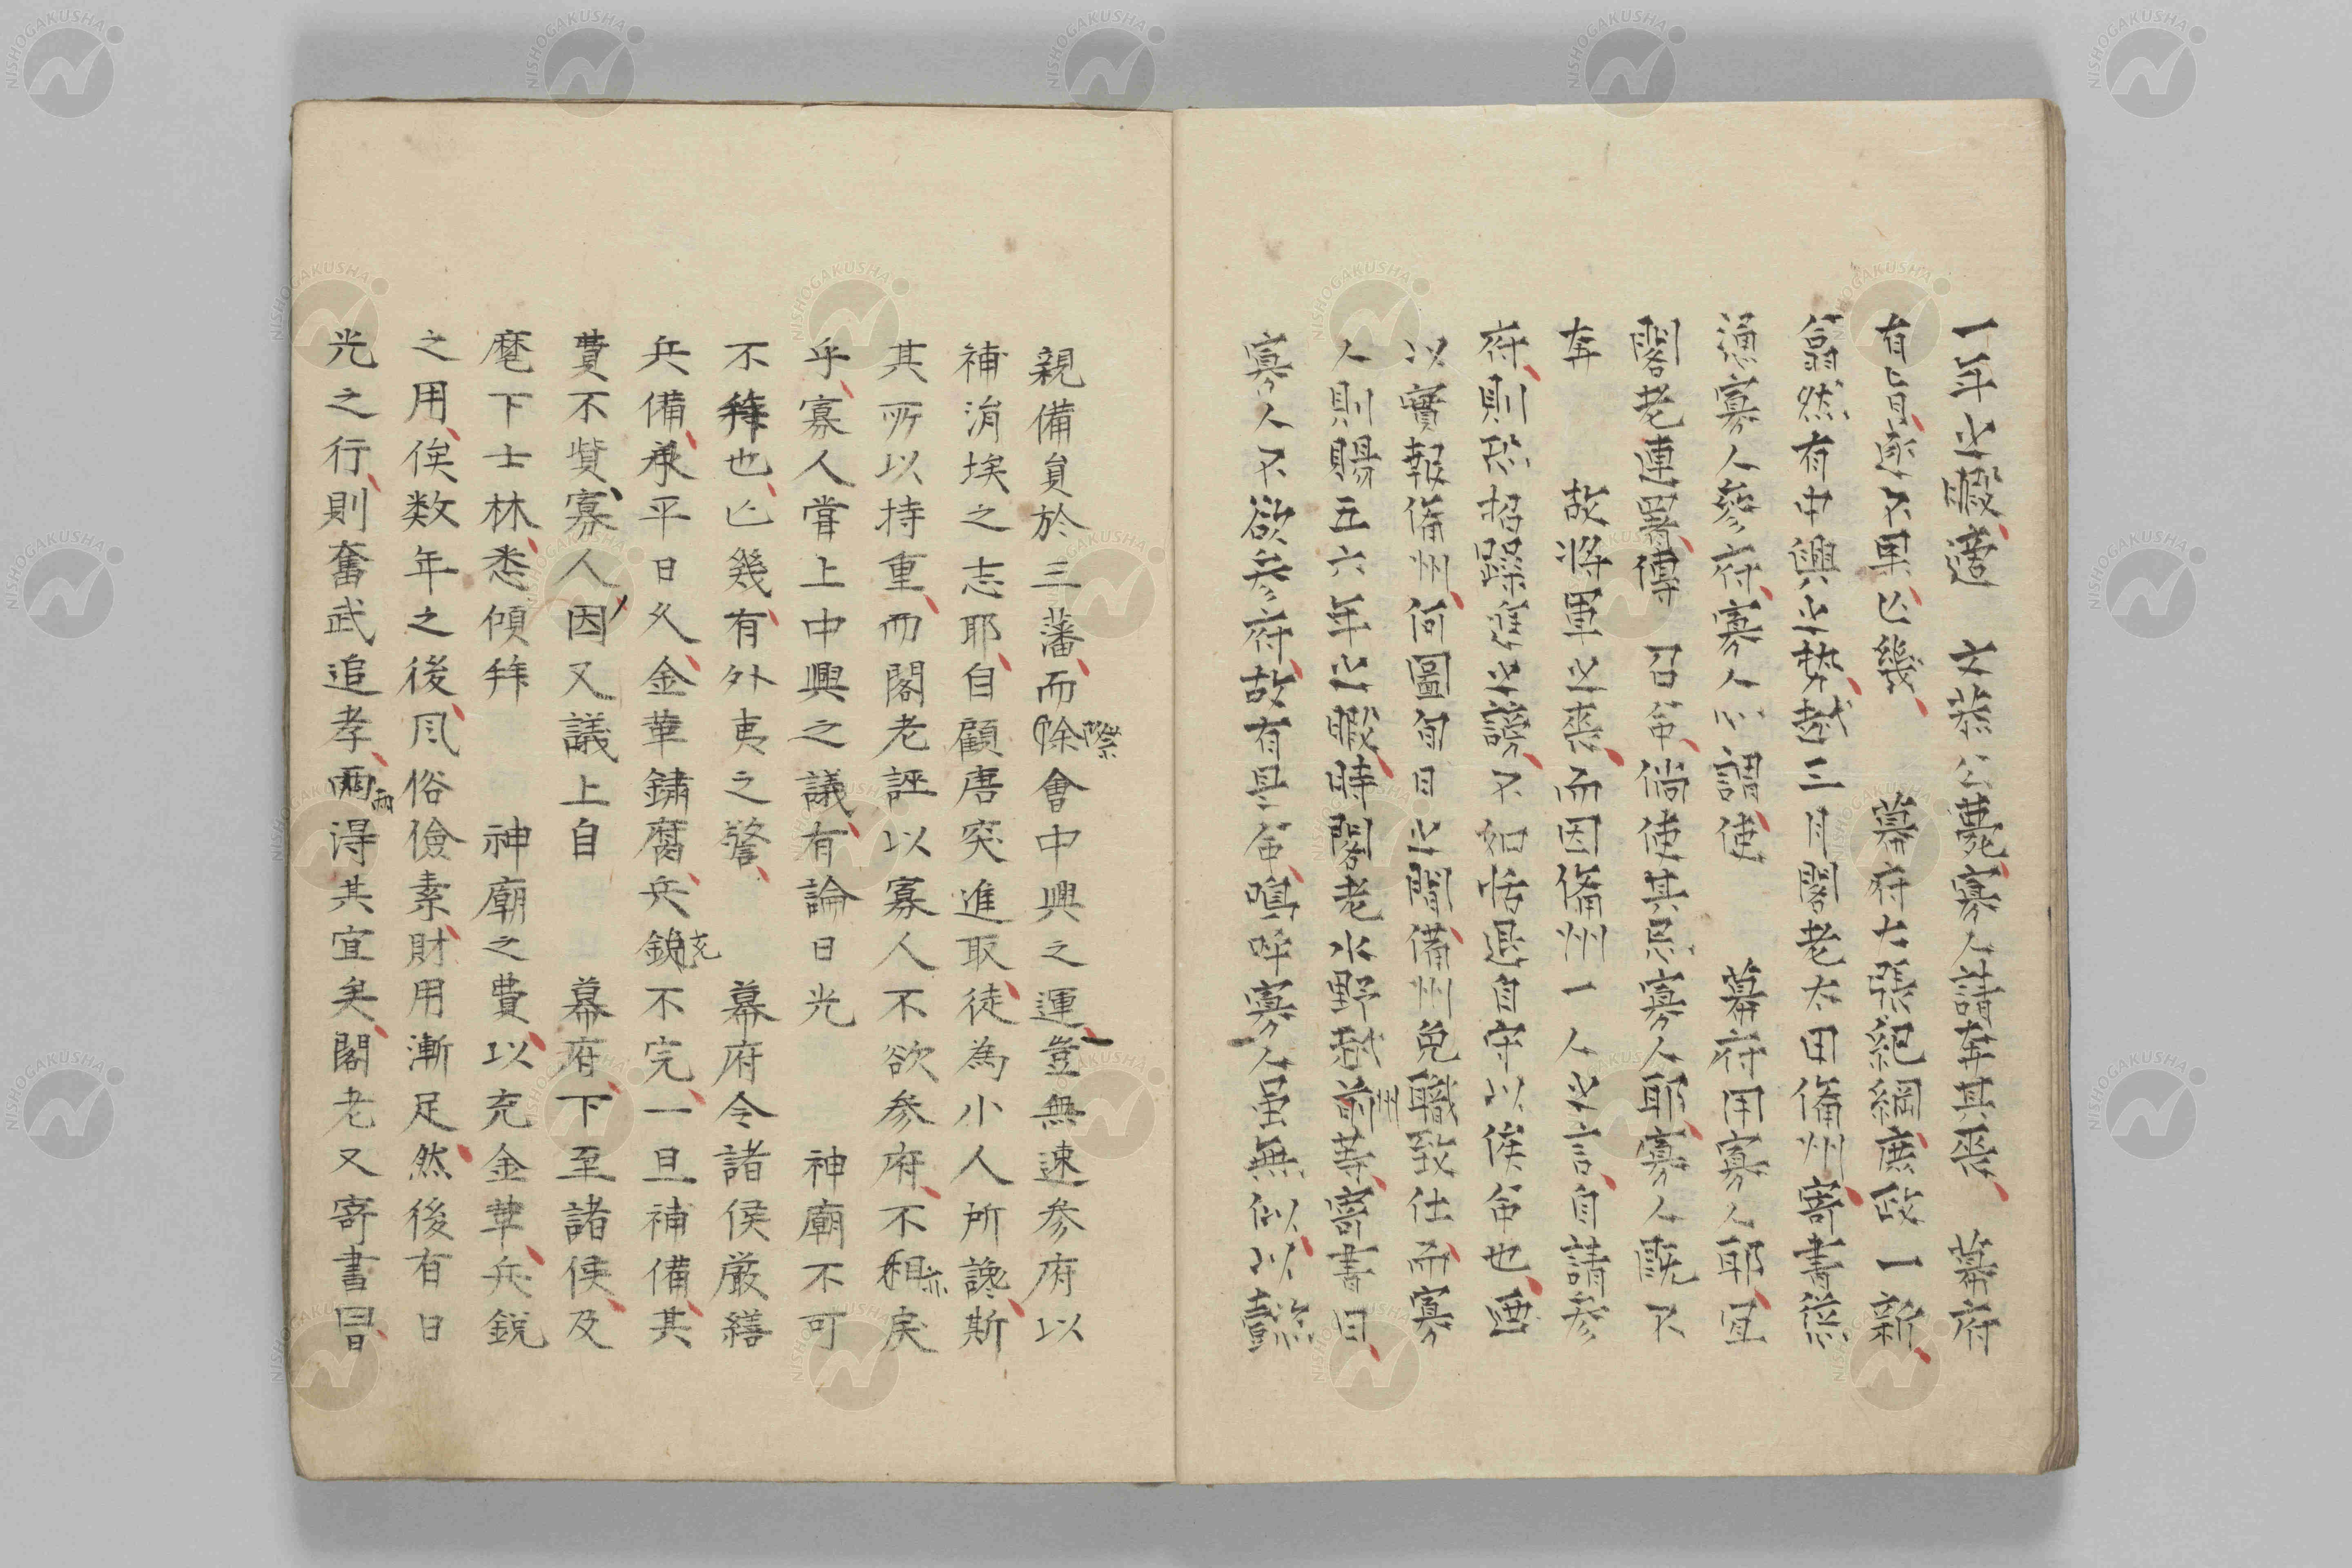 一年之暇遭　文恭公薨寡人請奔其喪　幕府
有旨遂不果亡幾　幕府大張紀綱庶政一新
翕然有中興之勢越三月閣老太田備州寄書慫
慂寡人參府寡人心謂使　幕府用寡人耶宜
閣老連署傳　召命倘使其忌寡人耶寡人既不
奔　故将軍之喪而因備州一人之言自請参
府則恐招躁進之謗不如恬退自守以俟命也
以實報備州何圖旬日之間備州免職致仕而寡
人則賜五六年之暇時閣老水野越前等寄書曰
寡人不欲参府故有是命嗚呼寡人虽無似以懿
親備員於三藩而際會中興之運豈無速参府以
補涓埃之志耶自顧唐突進取徒為小人所讒斯
其所以持重而閣老誣以寡人不欲参府不亦戻
乎寡人嘗上中興之議有論日光　神廟不可
不拜也亡幾有外夷之警　幕府令諸侯厳繕
兵備承平日久金革鏽腐兵銃不完一旦補備其
費不貲寡人因又議上自　幕府下至諸侯及
麾下士林悉傾拜　神廟之費以充金革兵銃
之用俟数年之後風俗儉素財用漸足然後有日
光之行則奮武追孝両得其宜矣閣老又寄書曰
NISHOGAKUSHA